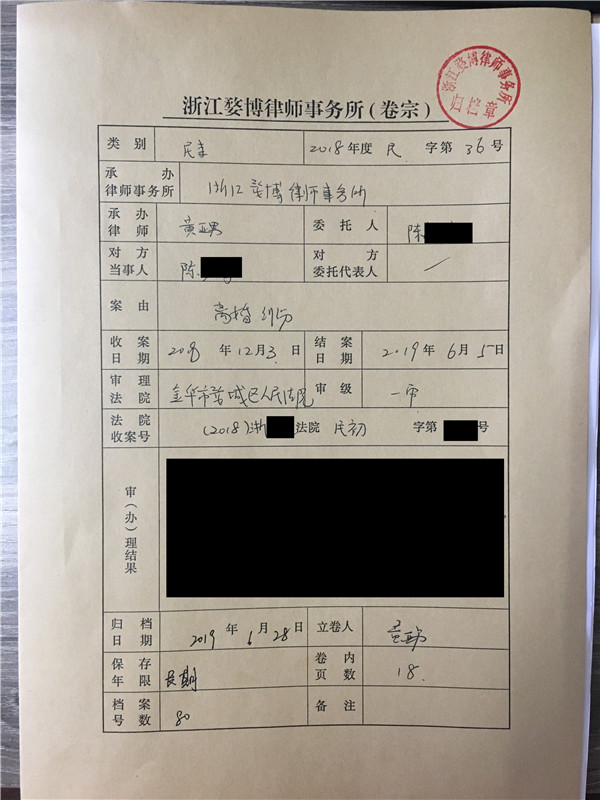 浙江婺博律师事务所
归档章
浙江婺博律师事务所（卷宗）
类别 民事 2018年度 民 字第 36 号
承办律师事务所 浙江婺博律师事务所
承办律师 黄亚男 委托人 陈
对方当事人 陈 对方委托代表人 /
案由 离婚纠纷
收案日期 2018 年 12月 3 日 结案日期 2019 年 6 月 5 日
审理法院 金华市婺城区人民法院 审级 一审
法院收案号 (2018)浙 法院 民初 字第 号
审（办）理结果
归档日期 2019 年 6 月 28 日 立卷人
保存年限 长期 卷内页数 18.
档案号数 80 备注